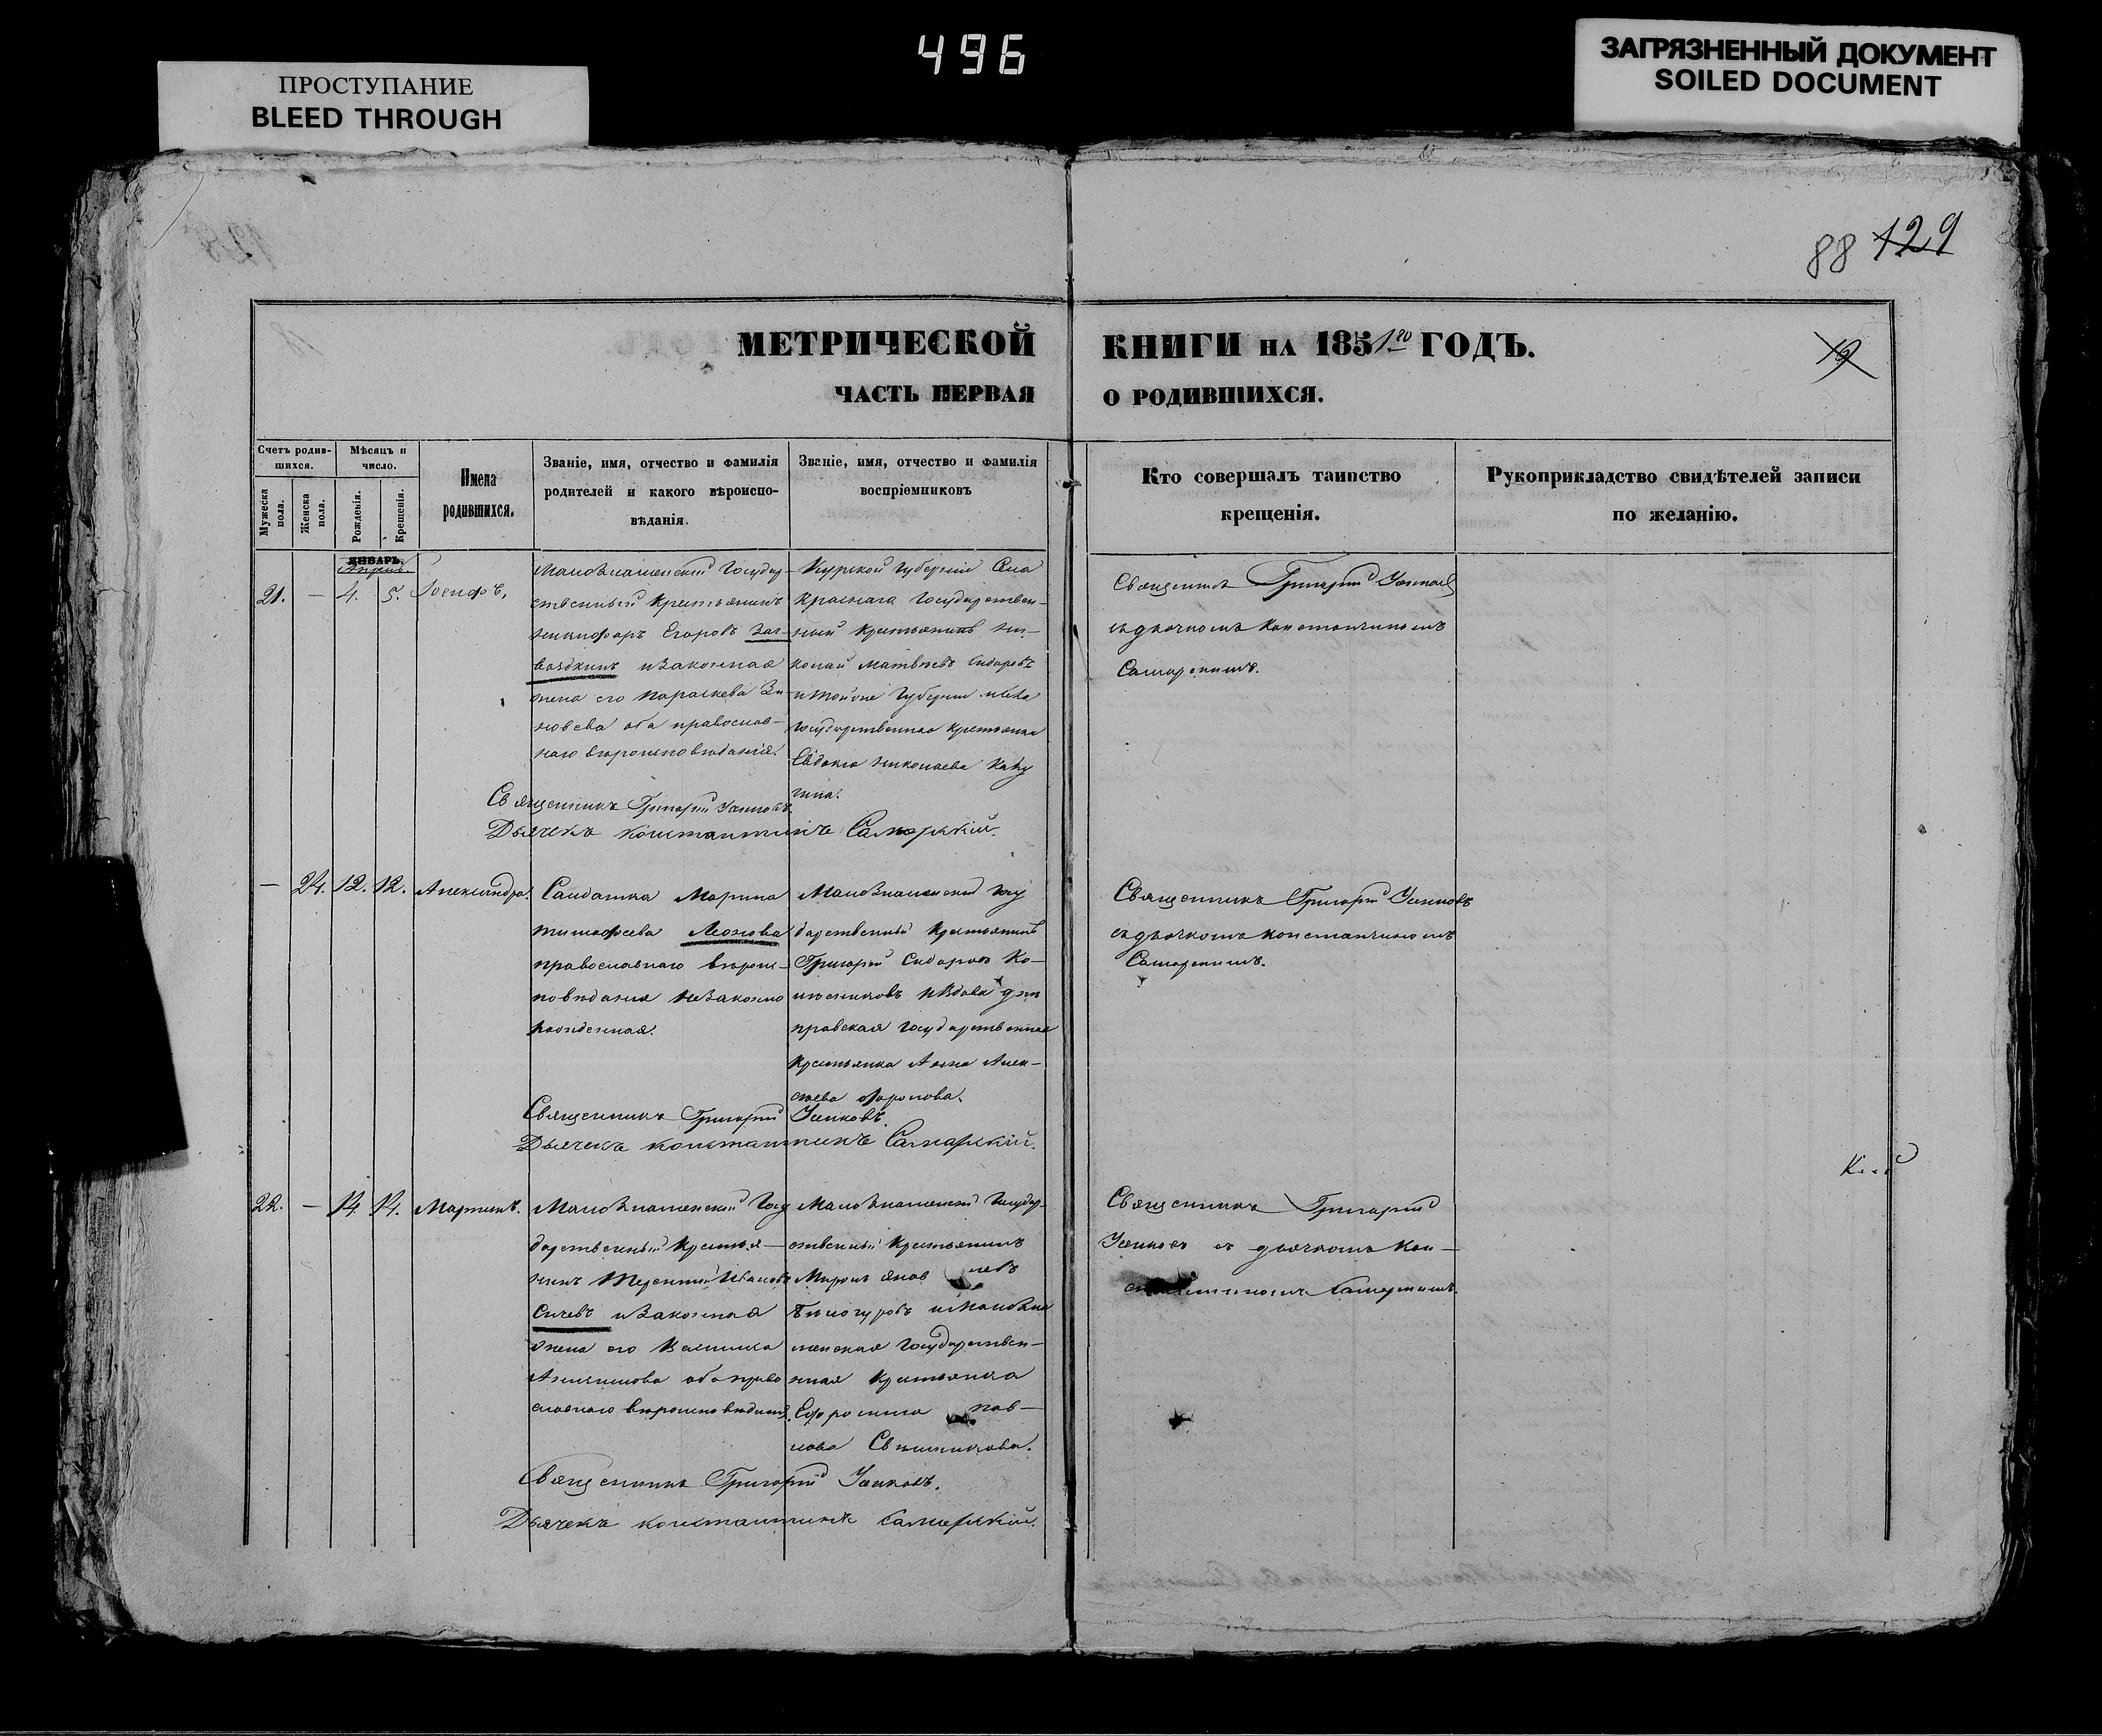 496
ПРОСТУПАНИЕ
BLEED THROUGH
ЗАГРЯЗНЕННЫЙ ДОКУМЕНТ
SOILED DOCUMENT
88 129
МЕТРИЧЕСКОЙ КНИГИ НА 1851го ГОДЪ.
19
ЧАСТЬ ПЕРВАЯ О РОДИВШИХСЯ.
Счетъ родив-
шихся.
Мужеска пола.
Женска пола.
Мѣсяцъ и
число.
Рожденія.
Крещенія.
Имена
родившихся.
Званіе, имя, отчество и фамилія
родителей и какого вѣроиспо-
вѣданія.
Званіе, имя, отчество и фамилія
воспріемниковъ
Кто совершалъ таинство
крещенія.
Рукоприкладство свидѣтелей записи
по желанію.
ЯНВАРЬ.
Апрель.
21. — 4. 5. Іосифъ,
Малознаменский Государ-
ственный крестьянинъ
Никифоръ Егоровъ
изаконная
жена его Параскева Зи-
новьева оба православ-
наго вѣроисповѣданія.
Курской Губернии Села
Краснаго Государствен-
ный крестьянинъ Ни-
колай Матвѣевъ Сидоровъ
Губернии
Государственная крестьянка
Евдокія Николаева
Священникъ Григорій
съ дьячкомъ Константиномъ
Самарскимъ.
Священникъ Григорій
Дьячекъ Константинъ Самарскій.
— 24. 12. 12. Александра.
Солдатка Марина
Тимофеева Леонова
православнаго вѣроис-
повѣданія незаконно
рожденная.
Малознаменский Госу
дарственный крестьянинъ
Григорій Сидоровъ Ко-
ивдова дне
провская Государственная
крестьянка Анна Алек-
сѣева
Священникъ Григорій
съ дьячкомъ Константиномъ
Самарскимъ.
Священникъ Григорій
Дьячекъ Константинъ Самарскій.
22. — 14. 14. Мартинъ.
Малознаменский Госу
дарственный крестья-
нинъ Терентий Ивановъ
Сычевъ изаконная
жена его
оба право
славнаго вѣроисповѣданія.
Малознаменский Государ-
ственный крестьянинъ
Миронъ Яков левъ
Бѣлогуровъ и Малозна
менская Государствен-
ная крестьянка
Ефросинія Пав-
лова
Священникъ Григорій
съ дьячкомъ Кон-
стантиномъ Самарскимъ.
Священникъ Григорій
Дьячекъ Константинъ Самарскій.